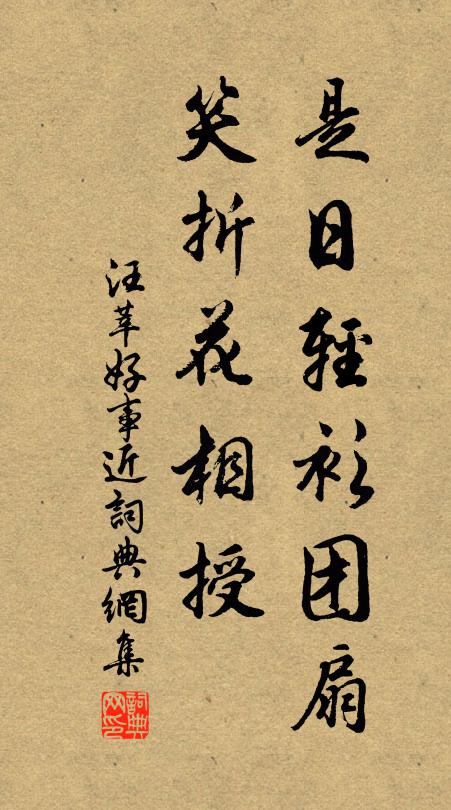 是日轻衫团扇
笑折花相授
汪莘好事近詞典網集
詞典网印